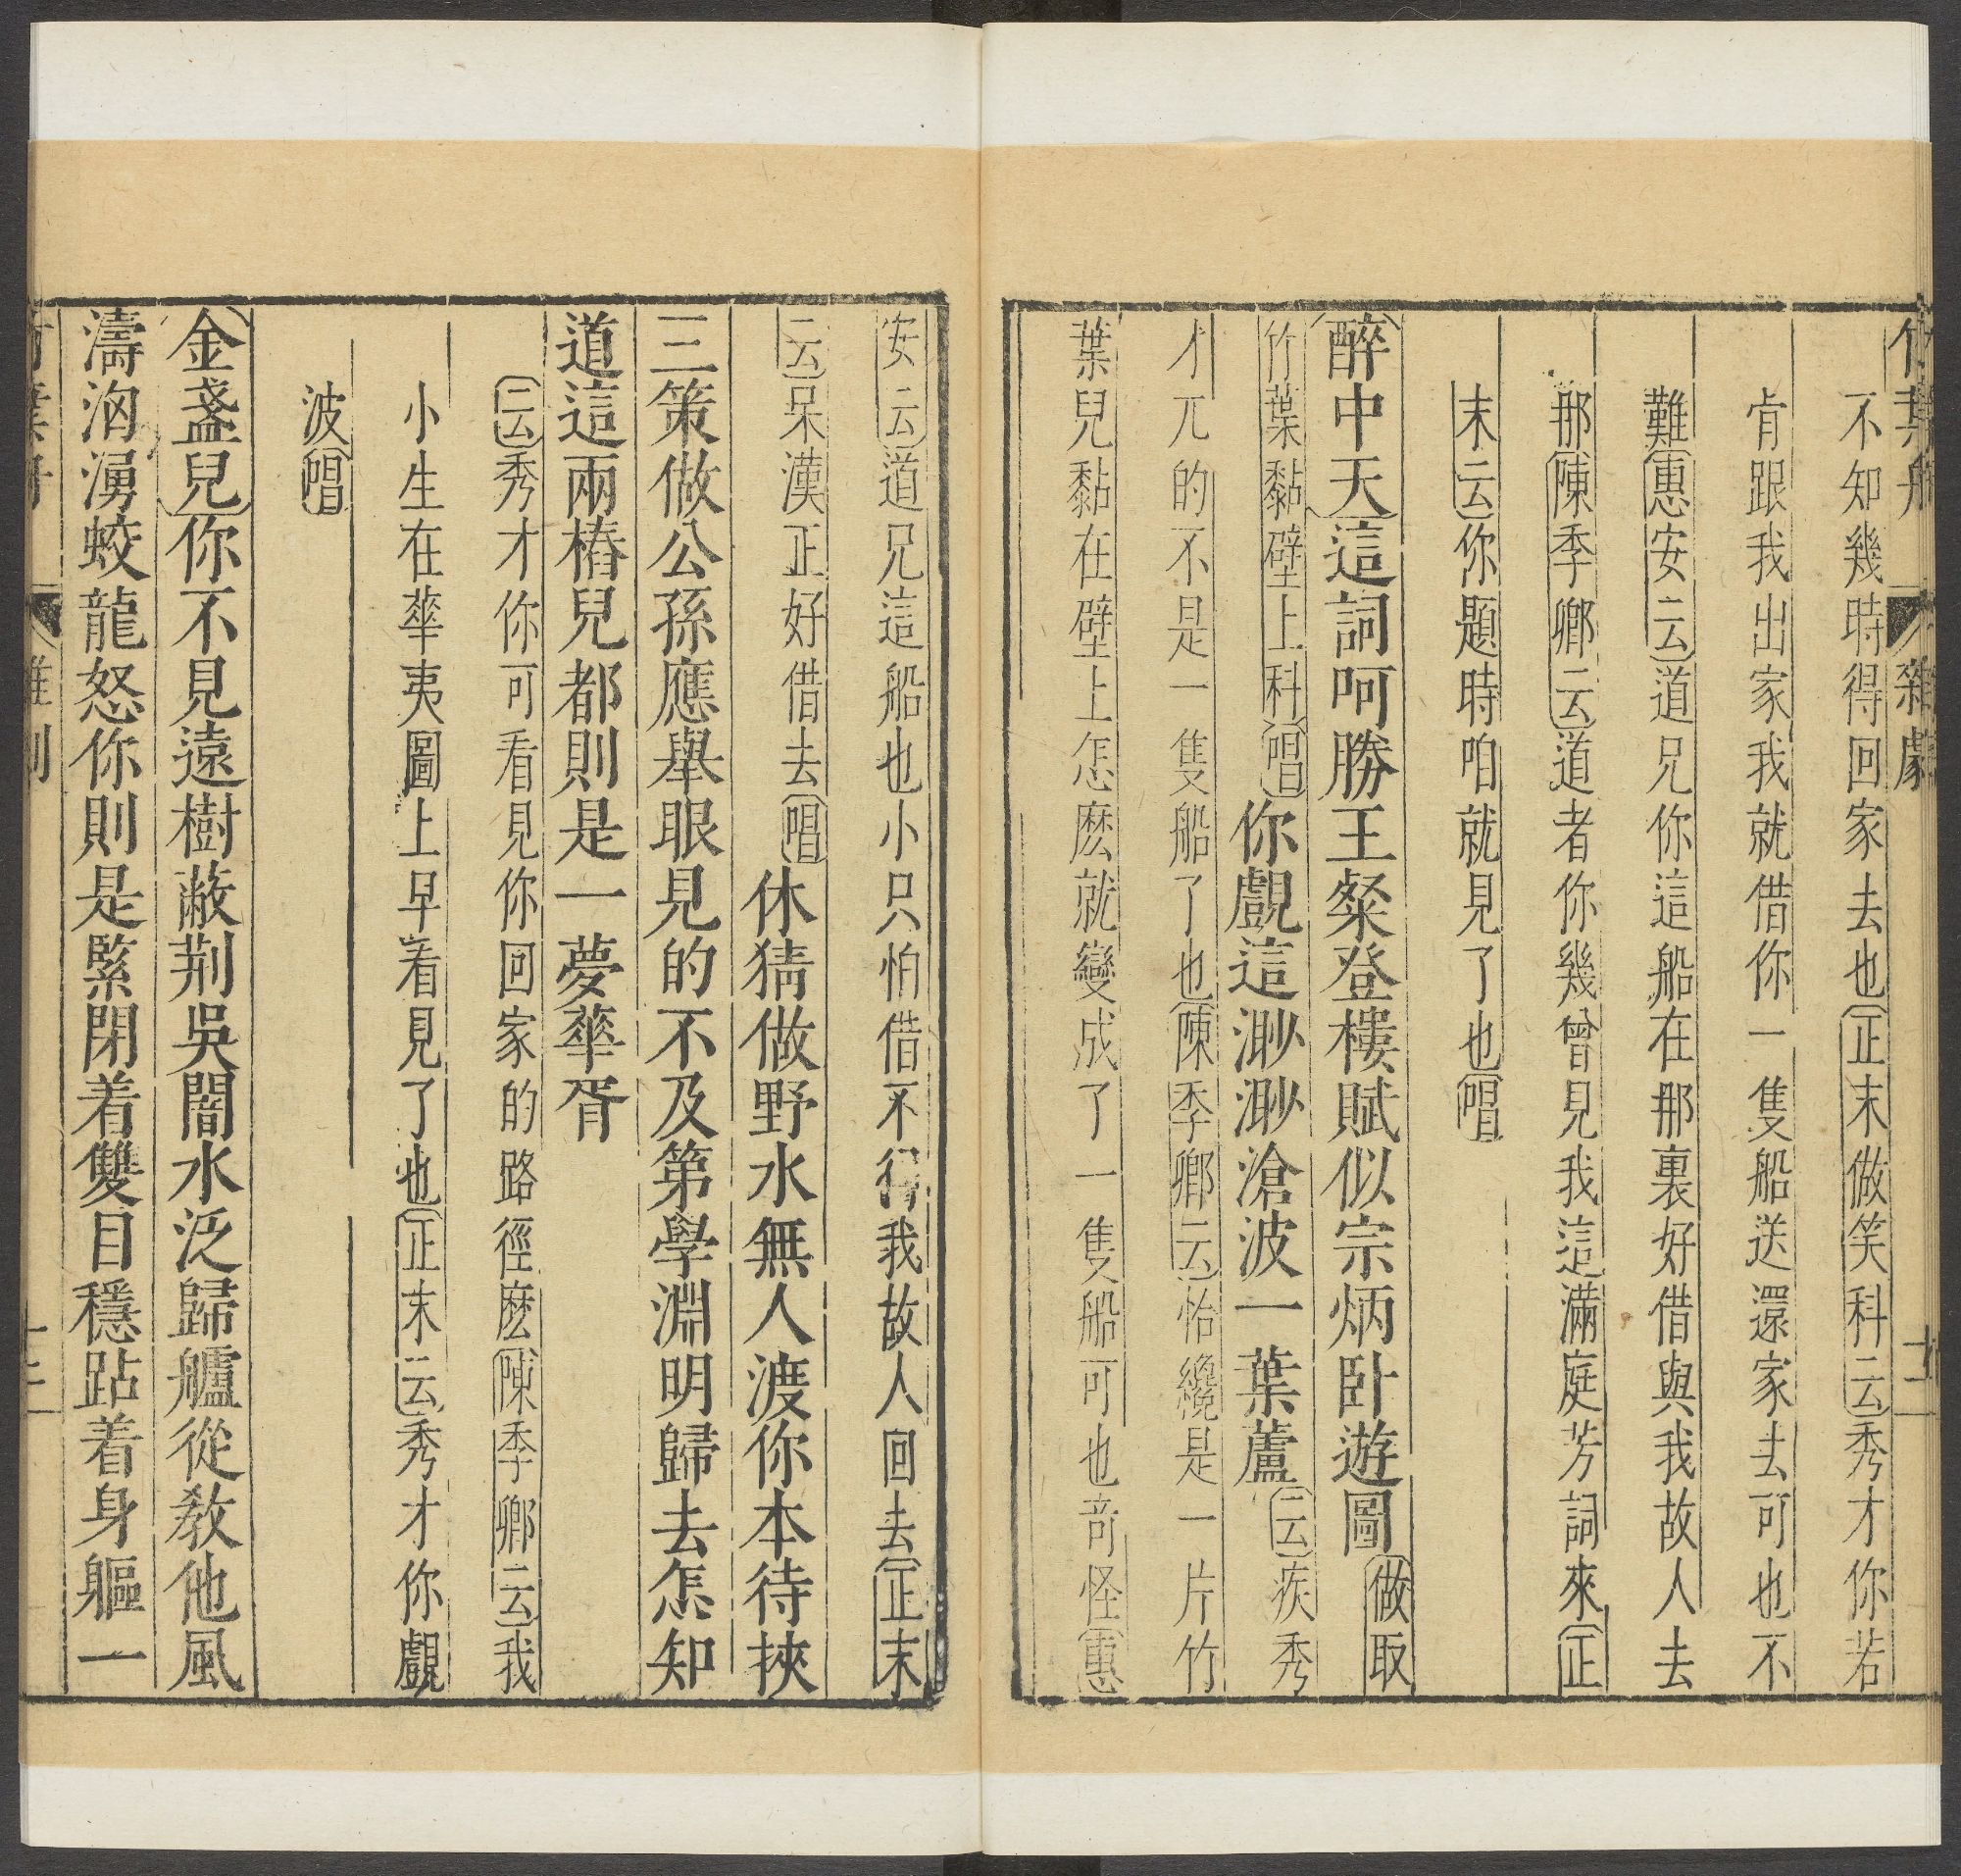 竹葉舟 雜劇 十二
不知幾時得回家去也正末做笑科云秀才你若
肯跟我出家我就借你一隻船送還家去可也不
難惠安云道兄你這船在那裏好借與我故人去
那陳季卿云道者你幾曾見我這滿庭芳詞來正
末云你題時咱就見了也唱
醉中天這詞呵勝王粲登樓賦似宗炳卧遊圖做取
竹葉黏壁上科唱你覷這渺渺滄波一葉蘆云疾秀
才兀的不是一隻船了也陳季卿云恰纔是一片竹
葉兒黏在壁上怎麽就變成了一隻船可也奇怪惠
安云道兄這船也小只怕借不得我故人回去正末
云呆漢正好借去唱休猜做野水無人渡你本待挾
三策做公孫應舉眼見的不及第學淵明歸去怎知
道這兩樁兒都則是一夢華胥
云秀才你可看見你回家的路徑麽陳季卿云我
小生在華夷圖上早看見了也正末云秀才你覷
波唱
金盞兒你不見遠樹蔽荆吳闊水泛歸艫從教他風
濤洶湧蛟龍怒你則是緊閉着雙目穩跕着身軀一